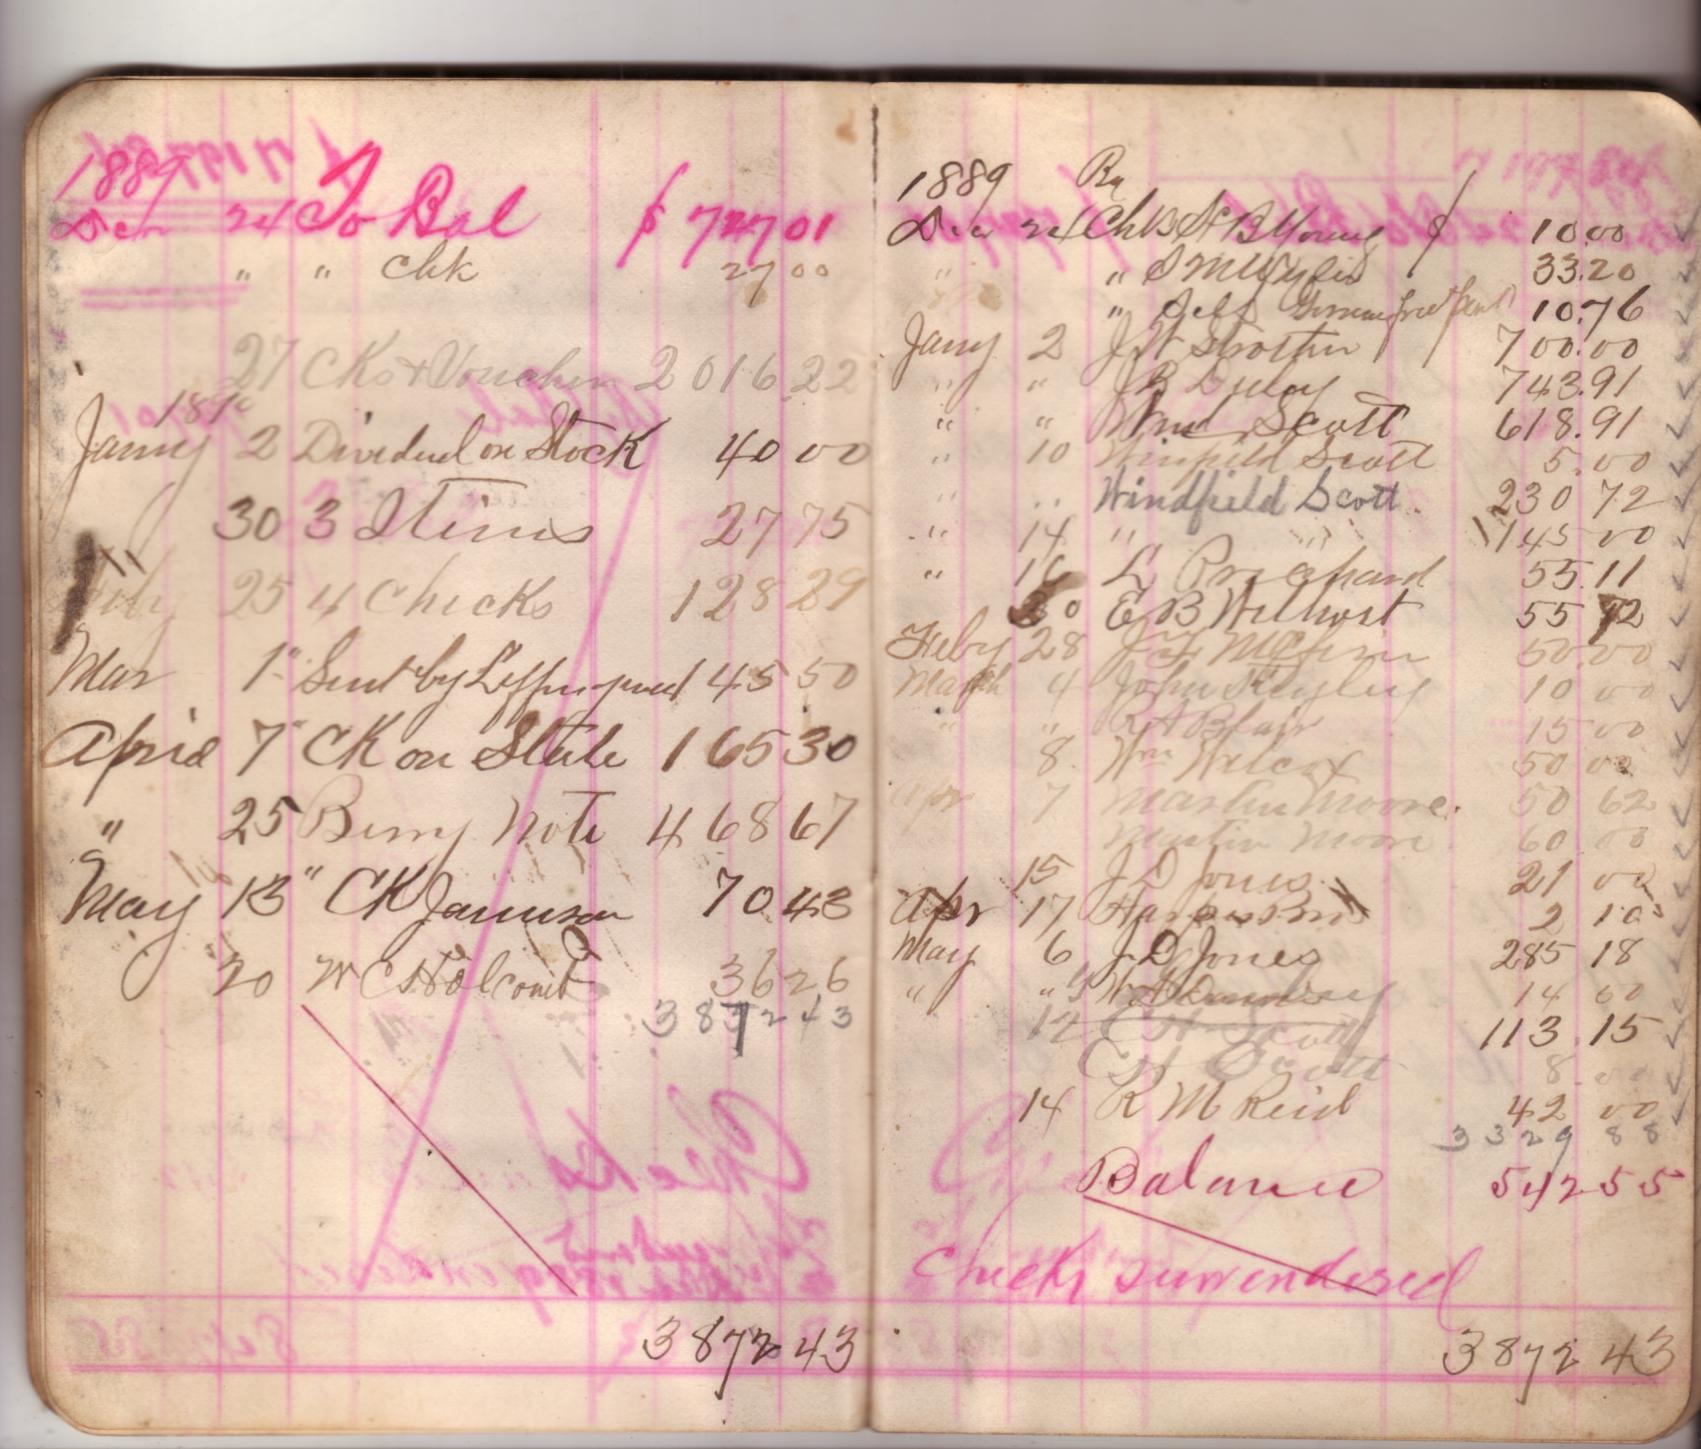 1889
Dec 24 To Bal $ 727 01
" " Chk 27 00
27 Cks & Voucher 2016 22
1890
Jany 2 Dividend on Stock 40 00
30 3 Items 27 75
Feby 25 4 Checks 128 29
Mar 1" Sent by Leffingwell 45 50
April 7" CK on State 165 30
" 25 Berry Note 468 67
May 13" CK Jamison 70 43
20 W C Holcomb 36 26
3872 43
3872 43
1889 By
Dec 24 Chk S B Young $ 10.00
" " S M Wylie 33.20
" Self 10.76
Jany 2 J W Strother 700.00
" " J B Dulay 743.91
" " Winf Scott 618.91
" 10 Winfield Scott 5.00
" " Windfield Scott 230 72
" 14 " " 145 00
" 16 L Prichard 55.11
20 E B Wilhoit 55 72
Feby 28 50.00
March 4 John 10 00
" " R A Blair 15 00
8 Wm Wilcox 50 00
Apr 7 Martin Moore 50 62
Martin Moore 60 00
15 J D Jones 21 00
Apr 17 Harper Bros 2 10
May 6 J D Jones 285 18
" " 14 00
12 C H Scott 113.15
C H Scott 8.00
14 R M Reid 42 00
3329 88
Balance 542 55
Checks surrendered
3872 43